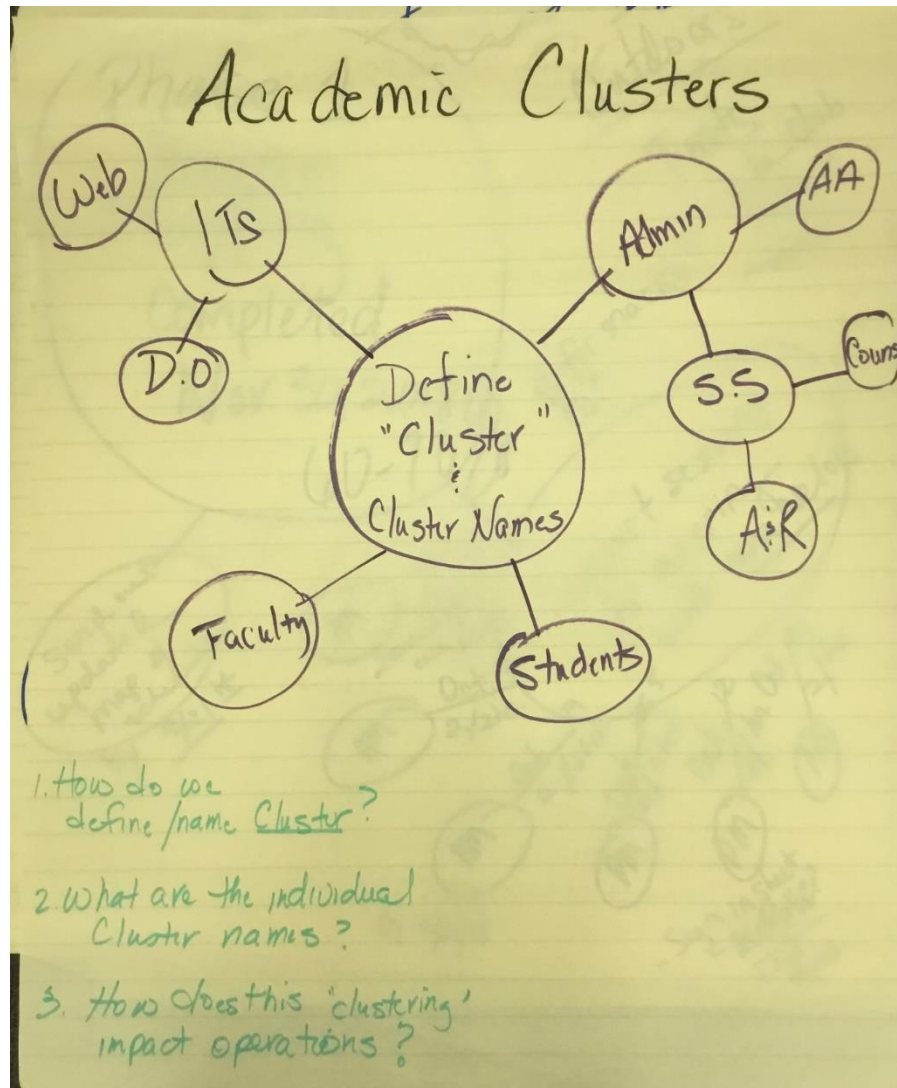 Academic Clusters
Web
ITs
D.O
Admin
AA
S.S
Couns
A&R
Define
"Cluster"
&
Cluster Names
Faculty
Students
1. How do we
define/name Cluster?
2. What are the individual
Cluster names?
3. How does this 'clustering'
impact operations?